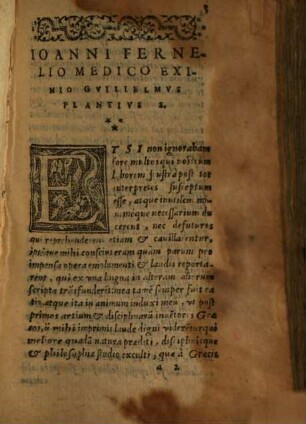 3
IOANNI FERNE-
LIO MEDICO EXI-
MIO GVILIELMVS
PLANTIVS S.
ETSI non ignorabam
fore multos qui nostrum
laborem frustra post tot
interpretes susceptum
esse, atque
neque necessarium du-
cerent, nec defuturos
qui reprehenderent etiam & cauillarentur,
mihi conscius eram quàm parum pro
impensa opera emolumenti & laudis reporta-
rent, qui ex vna lingua in alteram
scripta trãsfunderẽt: mea tamẽ semper fuit
atque ita in animum induxi meu, vt post
primos artium & disciplinarũ inuẽtores Græ-
cos, ii mihi imprimis laude digni viderẽtur qui
meliore quadã natura præditi, disciplinisque
& philosophiæ studio exculti, quæ à Græcis
a 2